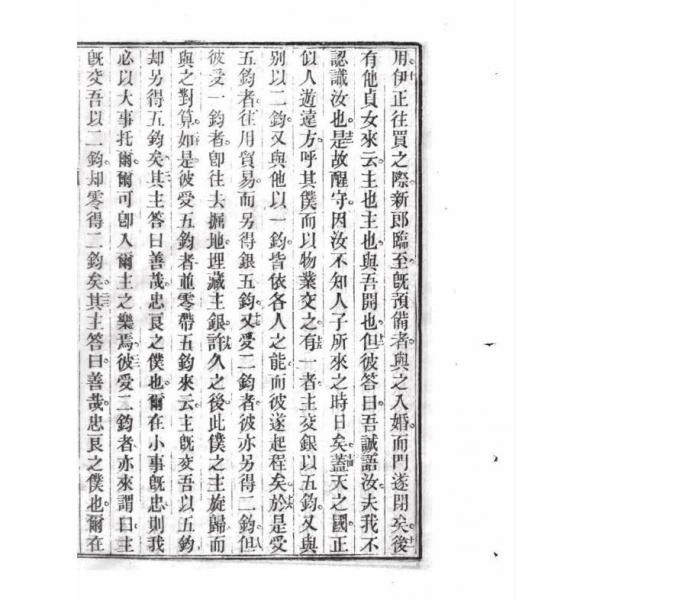 用伊正往買之際新郎臨至旣預備者與之入婚而門遂閉矣後
有他貞女來云主也主也與吾開也但彼答曰吾誠語汝夫我不
認識汝也是故醒守因汝不知人子所來之時日矣蓋天之國正
似人遊遠方呼其僕而以物業交之有一者主交銀以五鈞又與
別以二鈞又與他以一鈞皆依各人之能而彼遂起程矣於是受
五鈞者往用貿易而另得銀五鈞又受二鈞者彼亦另得二鈞但
彼受一鈞者卽往去掘地埋藏主銀許久之後此僕之主旋歸而
與之對算如是彼受五鈞者並零帶五鈞來云主旣交吾以五鈞
却另得五鈞矣其主答曰善哉忠良之僕也爾在小事旣忠則我
必以大事托爾爾可卽入爾主之樂焉彼受二鈞者亦來謂曰主
旣交吾以二鈞却零得二鈞矣其主答曰善哉忠良之僕也爾在